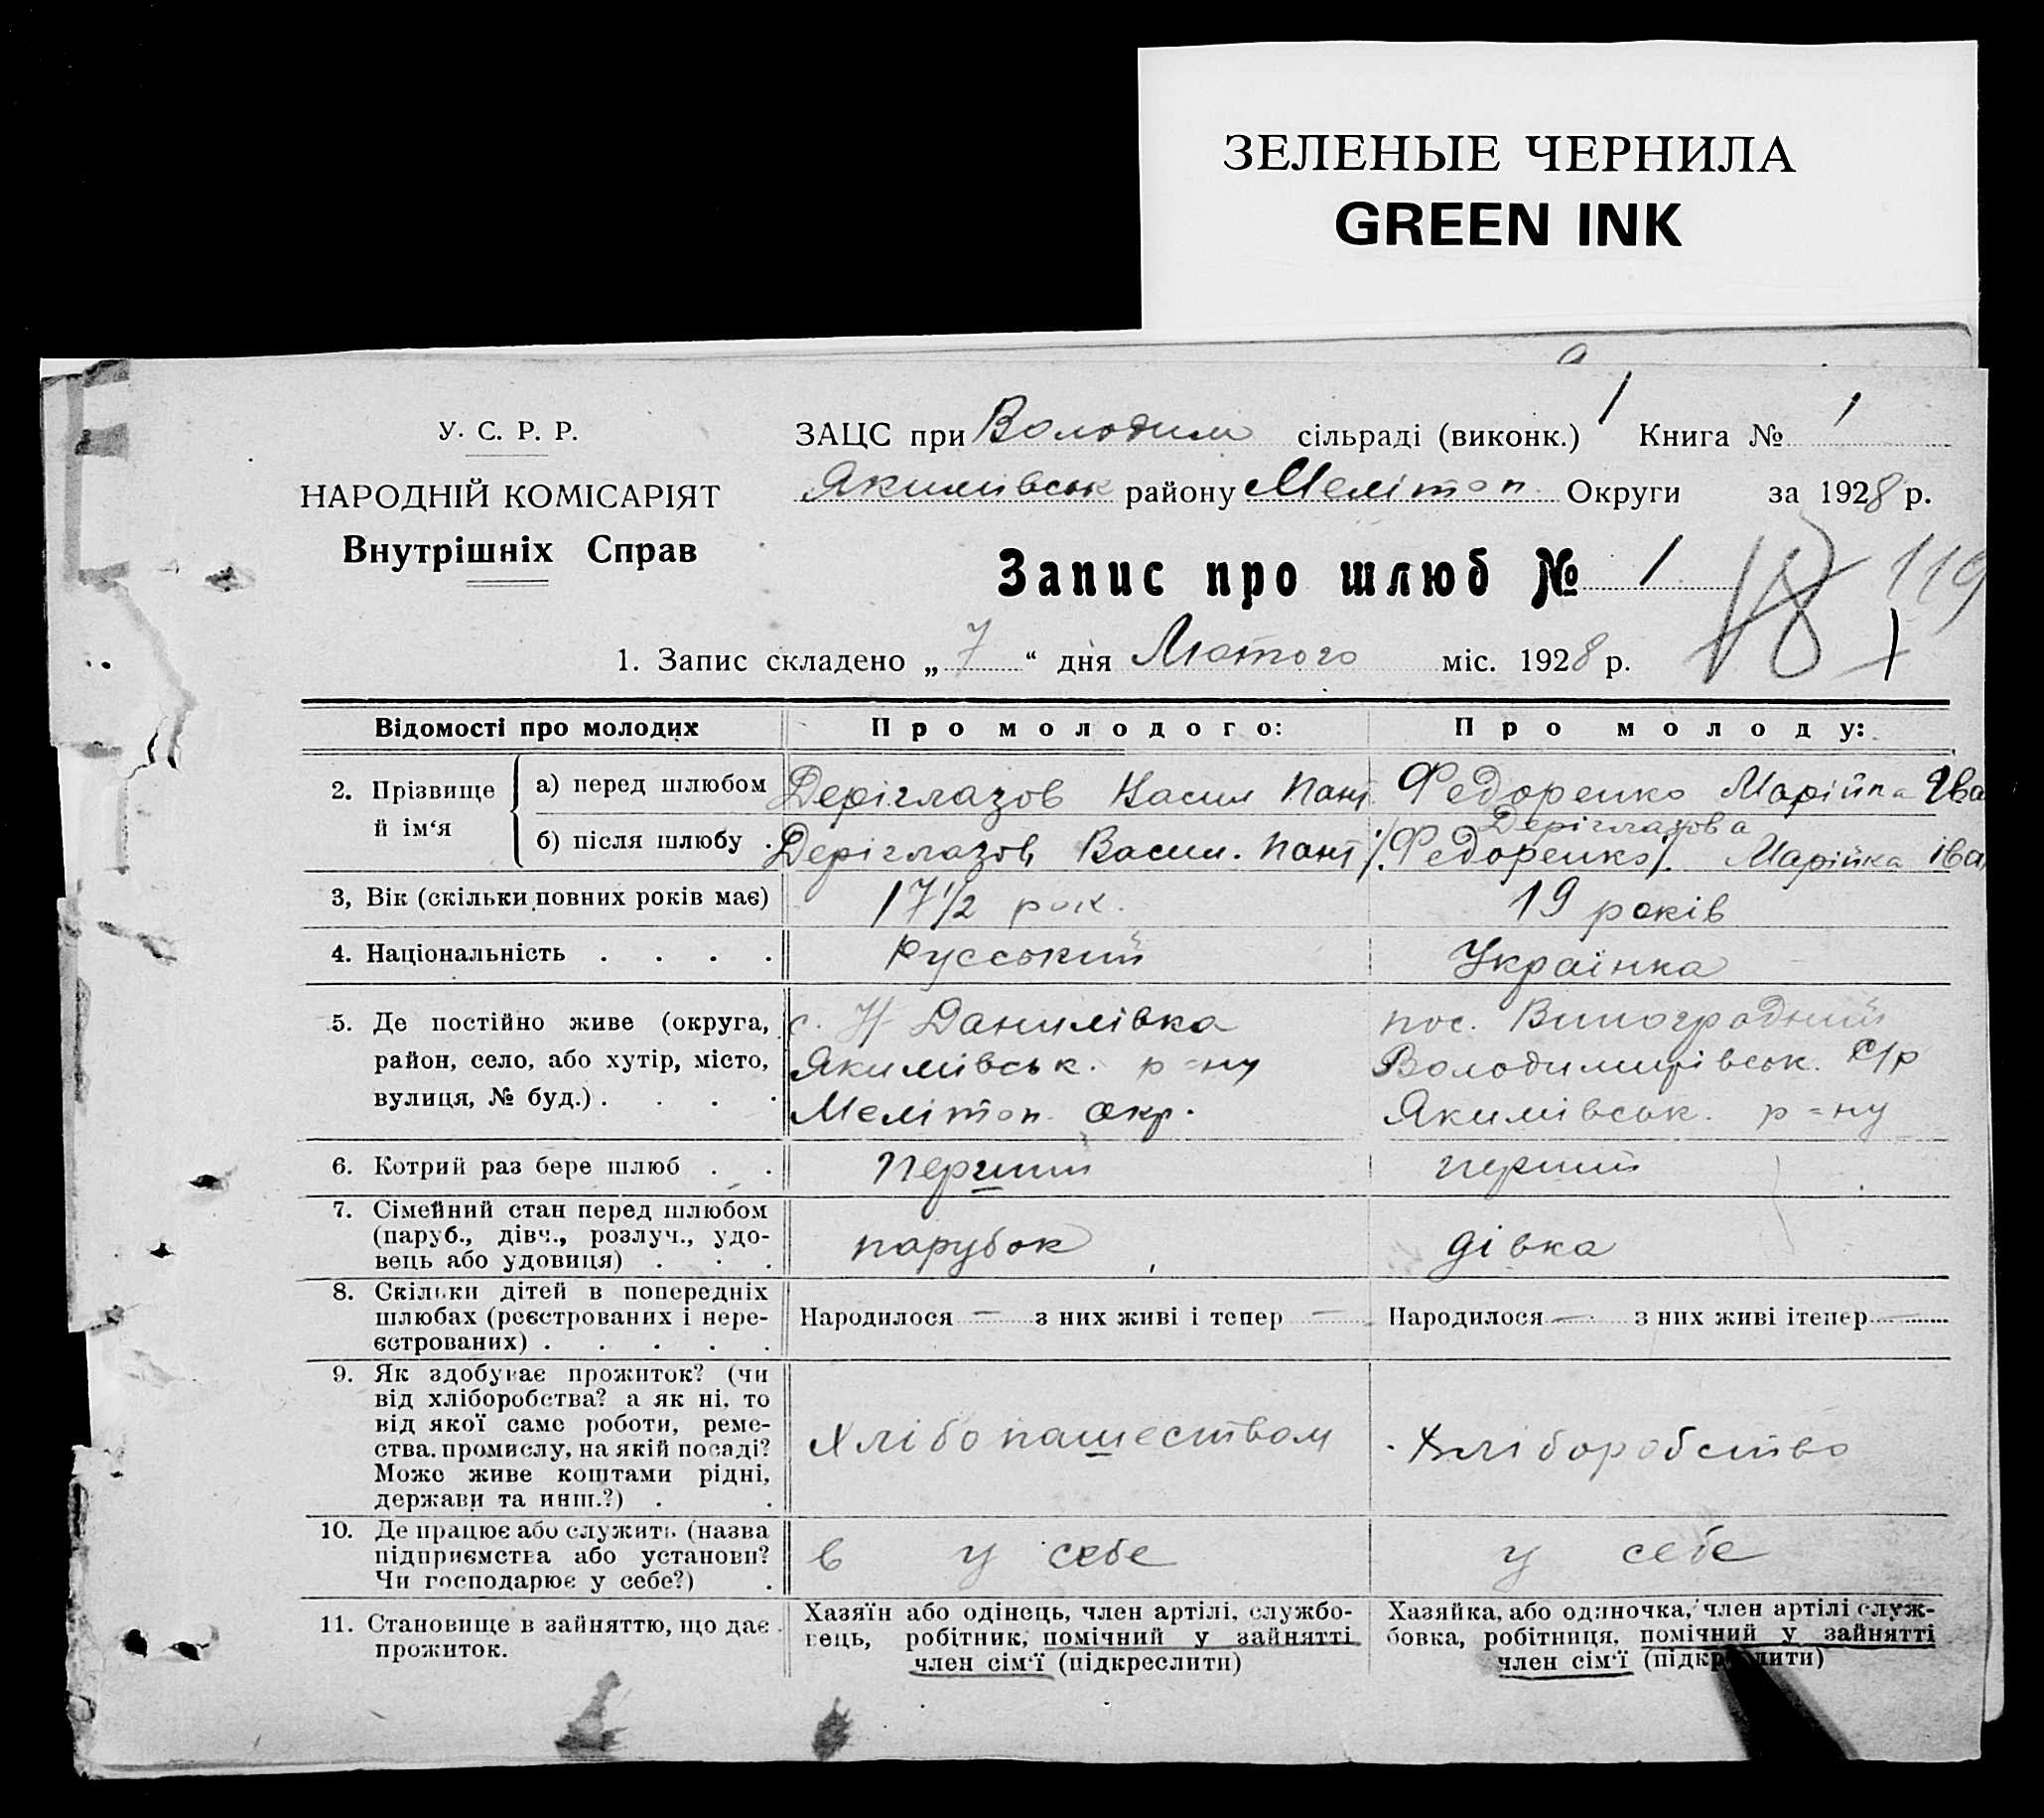 ЗЕЛЕНЫЕ ЧЕРНИЛА
GREEN INK
У. С. Р. Р.
НАРОДНІЙ КОМІСАРІЯТ
Внутрішніх Справ
ЗАЦС при Володим сільраді (виконк.) 1 Книга № 1
Якимівськ району Мелітоп. Округи за 1928 р.
Запис про шлюб № 1
18 119
1
1. Запис складено „ 7 “ дня Лютого міс. 1928 р.
Відомості про молодих Про молодого: Про молоду:
2. Прізвище й ім‘я
а) перед шлюбом Деріглазов Васил Пант. Федоренко Марійка Іва
Деріглазова
б) після шлюбу Деріглазов Васил. Пант. /.Федоренко/. Марійка іва
3, Вік (скільки повних років має) 17 1/2 рок. 19 років
4. Національність . . . . Русський Українка
5. Де постійно живе (округа, с. Н Данилівка пос. Виноградний
район, село, або хутір, місто, Якимівськ. р=ну Володимирівськ. с/р
вулиця, № буд.) . . . . Мелітоп. окр. Якимівськ. р=ну
6. Котрий раз бере шлюб . . перший перший
7. Сімейний стан перед шлюбом
(паруб., дівч., розлуч., удо-
вець або удовиця) . . . парубок дівка
8. Скільки дітей в попередніх
шлюбах (реєстрованих і нере- Народилося — з них живі і тепер — Народилося — з них живі ітепер —
єстрованих) . . . . .
9. Як здобуває прожиток? (чи
від хліборобства? а як ні, то
від якої саме роботи, реме-
ства, промислу, на якій посаді? Хлібопашеством Хліборобство
Може живе коштами рідні,
держави та инш.?) . .
10. Де працює або служить (назва
підприємства або установи? в у себе у себе
Чи господарює у себе?) .
11. Становище в зайняттю, що дає прожиток.
Хазяїн або одінець, член артілі, службо-
вець, робітник, помічний у зайнятті
член сім‘ї (підкреслити)
Хазяйка, або одиночка, член артілі служ-
бовка, робітниця, помічний у зайнятті
член сім‘ї (підкреслити)